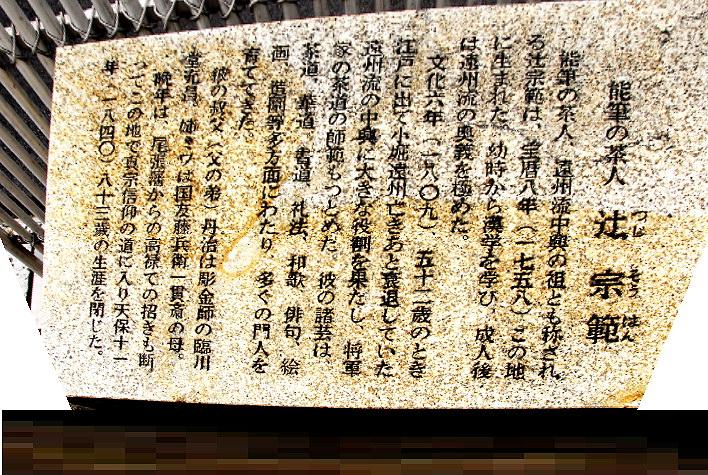 能筆の茶人 辻宗範
つじ そう はん
能筆の茶人、遠州流中興の祖とも称され
る辻宗範は、宝暦八年（一七五八）この地
に生まれた。幼時から漢学を学び、成人後
は遠州流の奥義を極めた。
文化六年（一八〇九）五十二歳のとき
江戸に出て小堀遠州亡きあと衰退していた
遠州流の中興に大きな役割を果たし、将軍
家の茶道の師範もつとめた。彼の諸芸は、
茶道、華道、書道、礼法、和歌、俳句、絵
画、造園等多方面にわたり、多くの門人を
育ててきた。
彼の叔父（父の弟）丹治は彫金師の臨川
堂充昌、姉きワは国友藤兵衛一貫斎の母。
晩年は、尾張藩からの高禄での招きも断
つてこの地で真宗信仰の道に入り天保十一
年（一八四〇）八十三歳の生涯を閉じた。